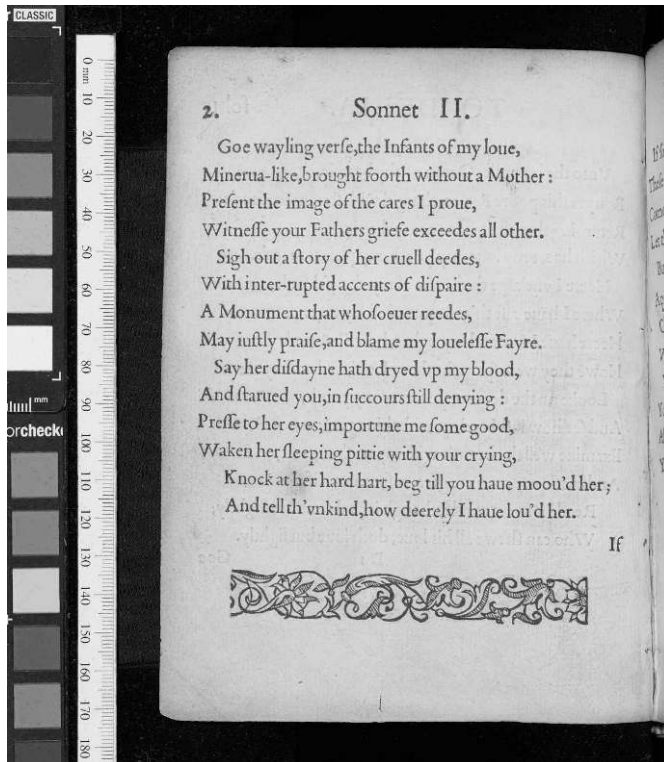 CLASSIC
0 mm 10 20 30 40 50 60 70 80 90 100 110 120 130 140 150 160 170 180
mm
orchecke
2. Sonnet II.
Goe wayling verſe,the Infants of my loue,
Minerua-like,brought foorth without a Mother :
Preſent the image of the cares I proue,
Witneſſe your Fathers griefe exceedes all other.
Sigh out a ſtory of her cruell deedes,
With inter-rupted accents of diſpaire :
A Monument that whoſoeuer reedes,
May iuſtly praiſe,and blame my loueleſſe Fayre.
Say her diſdayne hath dryed vp my blood,
And ſtarued you,in ſuccours ſtill denying :
Preſſe to her eyes,importune me ſome good,
Waken her ſleeping pittie with your crying,
Knock at her hard hart, beg till you haue moou'd her;
And tell th'vnkind,how deerely I haue lou'd her.
If